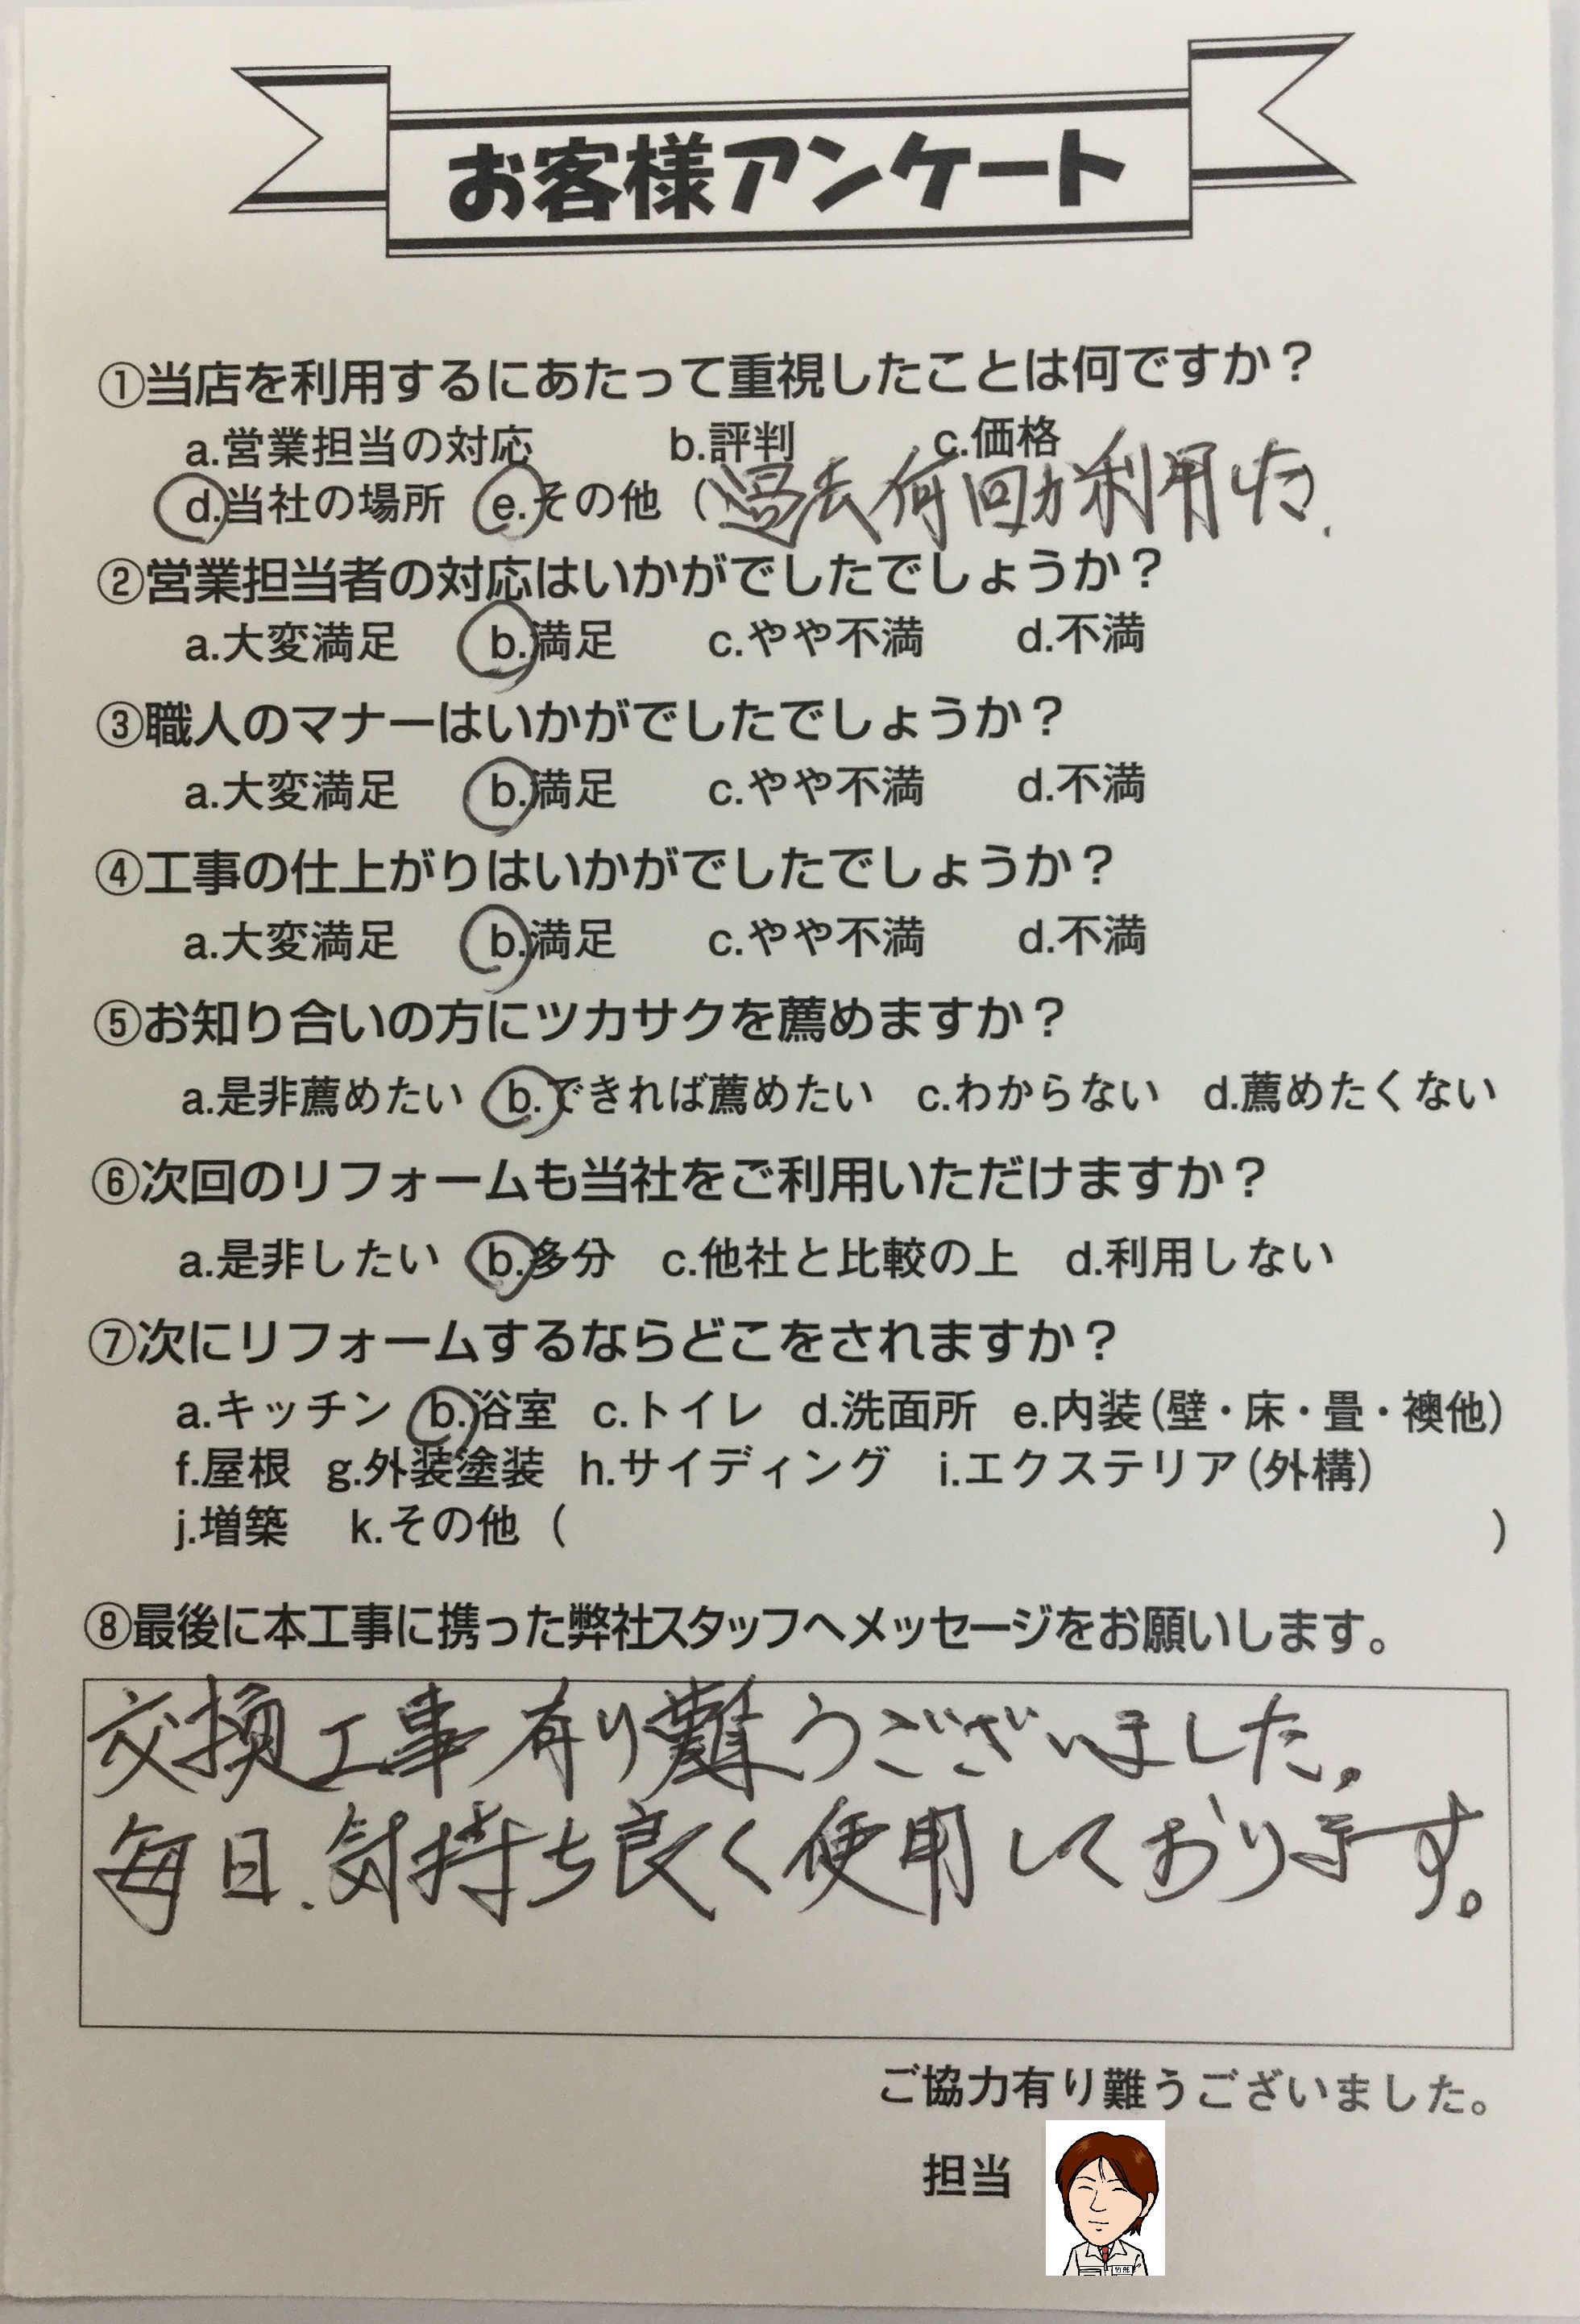 お客様アンケート
①当店を利用するにあたって重視したことは何ですか？
a.営業担当の対応 b.評判 c.価格
d.当社の場所 e.その他（過去何回か利用した.
②営業担当者の対応はいかがでしたでしょうか？
a.大変満足 b.満足 c.やや不満 d.不満
③職人のマナーはいかがでしたでしょうか？
a.大変満足 b.満足 c.やや不満 d.不満
④工事の仕上がりはいかがでしたでしょうか？
a.大変満足 b.満足 c.やや不満 d.不満
⑤お知り合いの方にツカサクを薦めますか？
a.是非薦めたい b.できれば薦めたい c.わからない d.薦めたくない
⑥次回のリフォームも当社をご利用いただけますか？
a.是非したい b.多分 c.他社と比較の上 d.利用しない
⑦次にリフォームするならどこをされますか？
a.キッチン b.浴室 c.トイレ d.洗面所 e.内装（壁・床・畳・襖他）
f.屋根 g.外装塗装 h.サイディング i.エクステリア（外構）
j.増築 k.その他（ ）
⑧最後に本工事に携った弊社スタッフへメッセージをお願いします。
交換工事有り難うございました。
毎日、気持ち良く使用しております。
ご協力有り難うございました。
担当